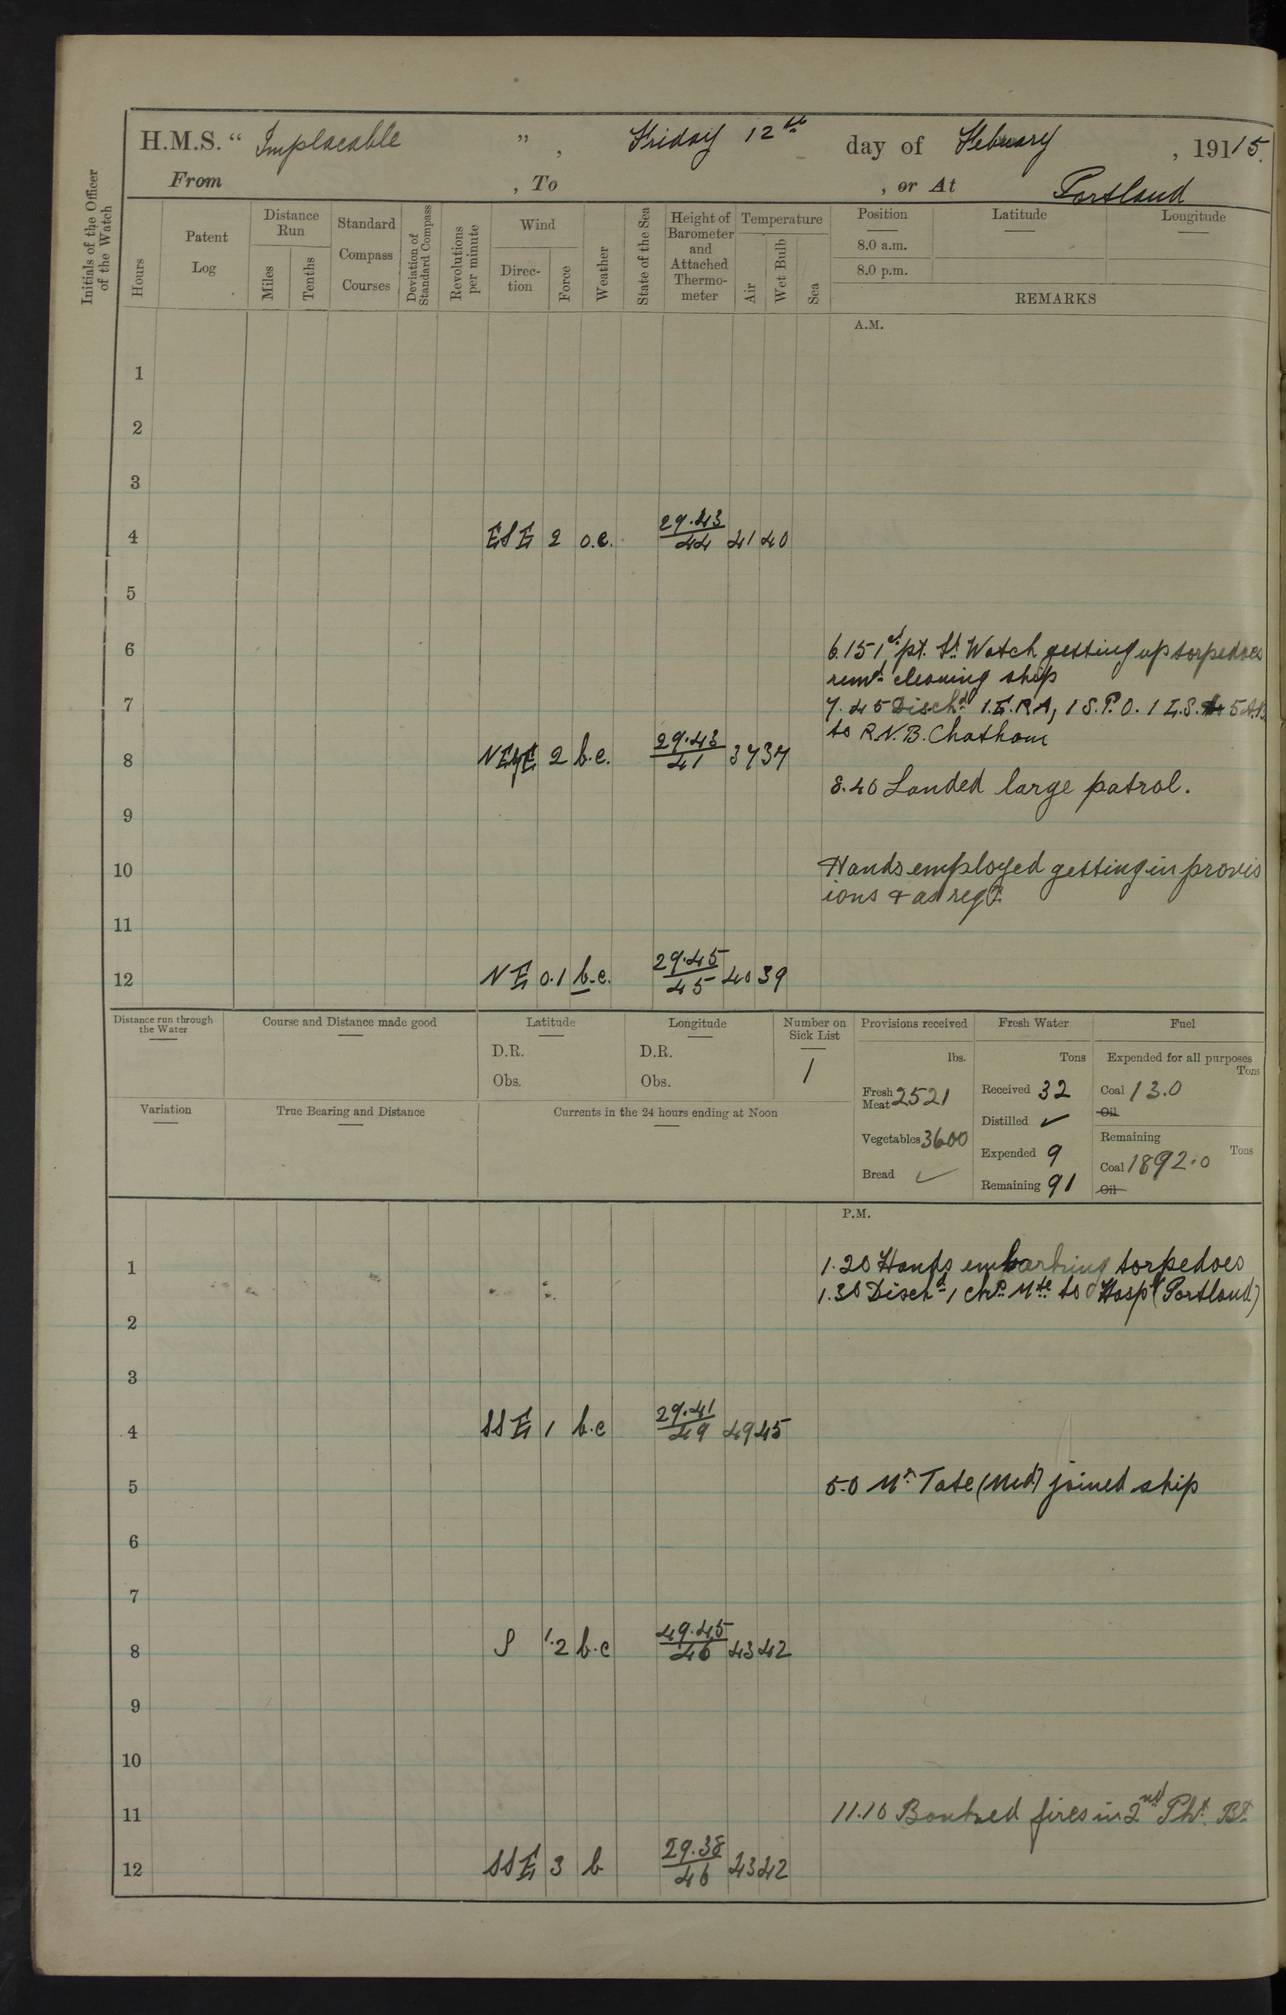 H.M.S. “ Implacable ” , Friday 12th day of Febuary , 191 15.
From , To , or At Portland
Initials of the Officer of the Watch
Hours
Patent Log
Distance Run
Miles
Tenths
Standard Compass Courses
Deviation of Standard Compass
Revolutions per minute
Wind
Direc-tion
Force
Weather
State of the Sea
Height of Barometer and Attached Thermo-meter
Temperature
Air
Wet Bulb
Sea
Position
Latitude
Longitude
8.0 a.m.
8.0 p.m.
REMARKS
A.M.
1
2
3
4 ESE 2 o.c. 29.43/44 41 40
5
6 6.15 1st pt. St Watch getting up torpedoes
remd. cleaning ship
7 7.45 Dischd 1 E.R.A, 1 S.P.O. 1 L.S. 5 A.B.
to R.N.B. Chatham
8 NEyE 2 b.c. 29.43/41 37 37
8.40 Landed large patrol.
9
10 Hands employed getting in provis
ions & as reqd.
11
12 NE 0.1 b.c. 29.45/45 40 39
Distance run through the Water
Course and Distance made good
Latitude
D.R.
Obs.
Longitude
D.R.
Obs.
Number on Sick List
1
Provisions received
lbs.
Fresh Meat 2521
Vegetables 3600
Bread ✓
Fresh Water
Tons
Received 32
Distilled ✓
Expended 9
Remaining 91
Fuel
Expended for all purposes
Tons
Coal 13.0
Oil
Remaining
Tons
Coal 1892.0
Oil
Variation
True Bearing and Distance
Currents in the 24 hours ending at Noon
P.M.
1 1.20 Hands embarking torpedoes
1.30 Dischd 1 chf. Mte. to Hospl (Portland)
2
3
4 SSE 1 b.c 29.41/49 49 45
5 5.0 Mr. Tate (Mid) joined ship
6
7
8 S 1.2 b.c 49.45/46 43 42
9
10
11 11.10 Banked fires in 2nd Pkt. Bt.
12 SSE 3 b 29.38/46 43 42